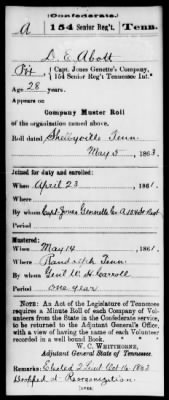 (Confederate.)
A 154 Senior Reg't, Tenn.
D. E. Abott
Pvt, Capt. Jones Genette's Company, 154 Senior Reg't Tennessee Inf.*
Age 28 years.
Appears on
Company Muster Roll
of the organization named above.
Roll dated Shelbyville Tenn
May 5, 1863.
Joined for duty and enrolled:
When April 23, 1861.
Where
By whom Capt Jones Genette Co A 154 Sr Regt
Period
Mustered:
When May 14, 1861.
Where Randolph Tenn
By whom Genl W. H. Carroll
Period one year
NOTE: An Act of the Legislature of Tennessee
requires a Minute Roll of each Company of Vol-
unteers from the State in Confederate service,
to be returned to the Adjutant General's Office,
with a view of having the name of each Volunteer
enrolled upon a record.
W. C. WHITHORNE,
Adjutant General State of Tennessee.
Remarks: Elected 2 Lieut Oct 16 1862
Dropped at Reorganization